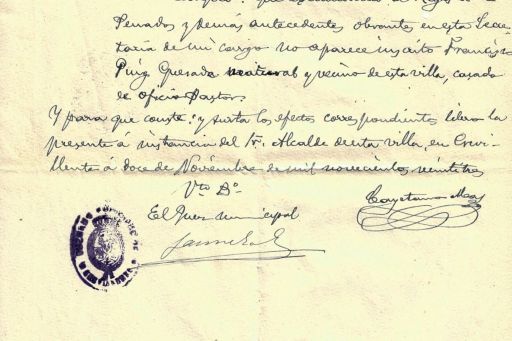 Penados y demás antecedentes obrantes en esta Secre-
taria de mi cargo no aparece inscrito Francisco
Puig Quesada natural y vecino de esta villa, casado
de oficio Pastor.
Y para que conste y surta los efectos correspondientes libro la
presente á instancia del Sr. Alcalde de esta villa, en Crevi-
llente á doce de Noviembre de mil novecientos veintitres
Vto Bo
El Juez municipal
Cayetano Mas